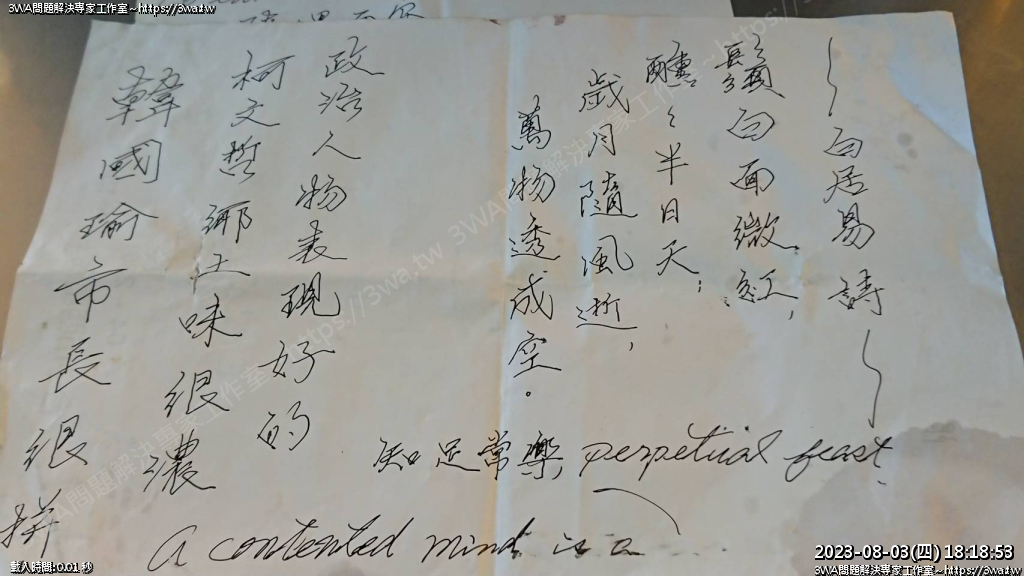 3WA問題解決專家工作室~https://3wa.tw
3WA問題解決專家工作室~https://3wa.tw
~白居易詩~
鬚白面微紅,
醺醺半日天,
歲月隨風逝,
萬物透成空。
政治人物表現好的
柯文哲鄉土味很濃
韓國瑜市長很拼
知足常樂 perpetual feast.
A contented mind is a
載入時間:0.01 秒
2023-08-03(四) 18:18:53
3WA問題解決專家工作室~https://3wa.tw